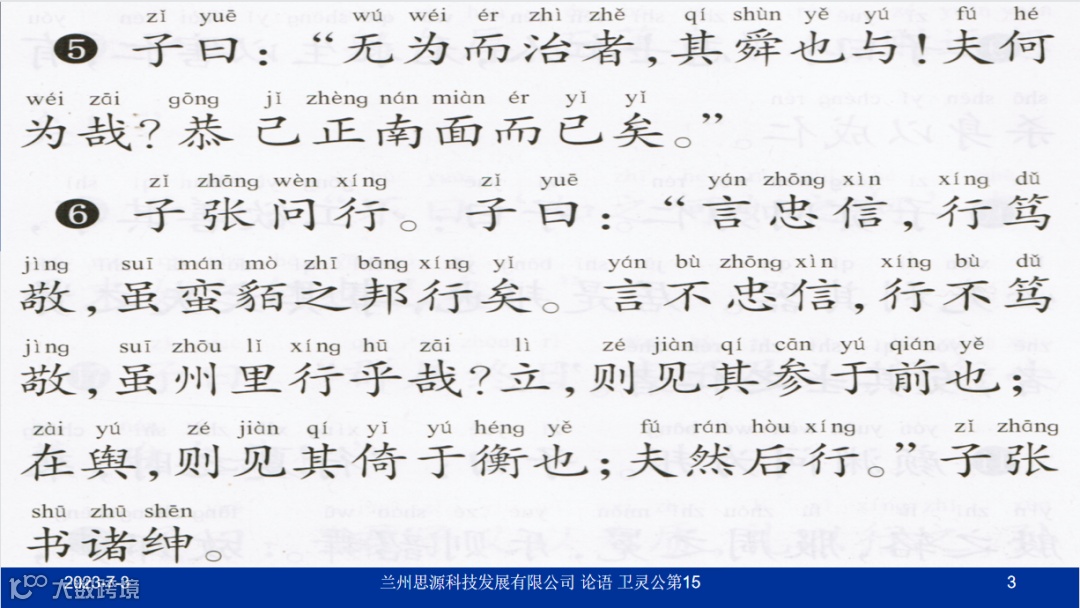 zǐ yuē wú wéi ér zhì zhě qí shùn yě yú fú hé
❺ 子曰：“无为而治者，其舜也与！夫何
wéi zāi gōng jǐ zhèng nán miàn ér yǐ yǐ
为哉？恭己正南面而已矣。”
zǐ zhāng wèn xíng zǐ yuē yán zhōng xìn xíng dǔ
❻ 子张问行。子曰：“言忠信，行笃
jìng suī mán mò zhī bāng xíng yǐ yán bù zhōng xìn xíng bù dǔ
敬，虽蛮貊之邦行矣。言不忠信，行不笃
jìng suī zhōu lǐ xíng hū zāi lì zé jiàn qí cān yú qián yě
敬，虽州里行乎哉？立，则见其参于前也；
zài yú zé jiàn qí yǐ yú héng yě fú rán hòu xíng zǐ zhāng
在舆，则见其倚于衡也；夫然后行。”子张
shū zhū shēn
书诸绅。
2023-7-3 兰州思源科技发展有限公司 论语 卫灵公第15 3
大数跨境